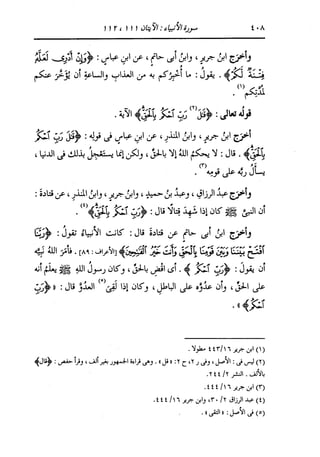 ٤٠٨ سورة الأنبياء: الآيتان ١١١ ، ١١٢
وأخرج ابنُ جريرٍ ، وابنُ أبى حاتمٍ ، عن ابنِ عباسٍ : ﴿وَإِنْ أَدْرِى لَعَلَّهُ
فِتْنَةٌ لَّكُمْ﴾ . يقولُ : ما أُخبِرُكم به من العذابِ والساعةِ أن يُؤَخَّرَ عنكم
لمُدَّتِكم(١) .
قولُه تعالى : ﴿قَلَ(٢) رَبِّ ٱحْكُم بِٱلْحَقِّ﴾ الآية .
أخرَج ابنُ جريرٍ ، وابنُ المنذرِ ، عن ابنِ عباسٍ فى قوله : ﴿قَلَ رَبِّ ٱحْكُم
بِٱلْحَقِّ﴾ . قال : لا يحكُمُ اللهُ إلا بالحقِّ ، ولكن إنما يستعجِلُ بذلك فى الدنيا ،
يسألُ ربَّه على قومِه(٣) .
وأخرَج عبدُ الرزاقِ ، وعبدُ بنُ حميدٍ ، وابنُ جريرٍ ، وابنُ المنذرِ ، عن قتادةَ :
أن النبىَّ ﷺ كان إذا شهِد قتالًا قال : ﴿رَبِّ ٱحْكُم بِٱلْحَقِّ﴾(٤) .
وأخرَج ابنُ أبى حاتمٍ عن قتادةَ قال : كانت الأنبياءُ تقولُ : ﴿رَبَّنَا
ٱفْتَحْ بَيْنَنَا وَبَيْنَ قَوْمِنَا بِٱلْحَقِّ وَأَنتَ خَيْرُ ٱلْفَٰتِحِينَ﴾ [الأعراف : ٨٩] . فأمَر اللهُ نبيَّه
أن يقولَ : ﴿رَبِّ ٱحْكُم﴾ . أى اقضِ بالحقِّ ، وكان رسولُ اللهِ ﷺ يعلَمُ أنه
على الحقِّ ، وأن عدوَّه على الباطلِ ، وكان إذا لقِى(٥) العدوَّ قال : « ﴿رَبِّ
ٱحْكُم﴾ » .
(١) ابن جرير ١٦/ ٤٤٣ مطولا .
(٢) ليس فى : الأصل ، وفى ر ٢، ح ٢: « قل » . وهى قراءة الجمهور بغير ألف ، وقرأ حفص : ﴿قال﴾
بالألف . النشر ٢/ ٢٤٤.
(٣) ابن جرير ١٦/ ٤٤٤.
(٤) عبد الرزاق ٢/ ٣٠، وابن جرير ١٦/ ٤٤٤.
(٥) فى الأصل : « التقى » .